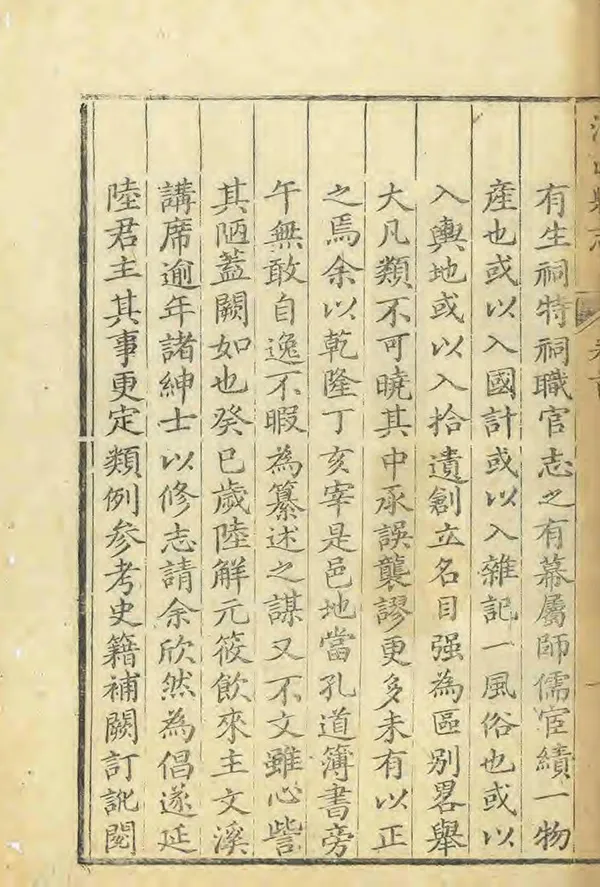 有生祠特祠職官志之有幕屬師儒宦績一物
產也或以入國計或以入雜記一風俗也或以
入輿地或以入拾遺創立名目强為區別畧舉
大凡類不可曉其中承誤襲謬更多未有以正
之焉余以乾隆丁亥宰是邑地當孔道簿書旁
午無敢自逸不暇為纂述之謀又不文雖心訾
其陋蓋闕如也癸巳歲陸解元筱飲來主文溪
講席逾年諸紳士以修志請余欣然為倡遂延
陸君主其事更定類例參考史籍補闕訂訛閱